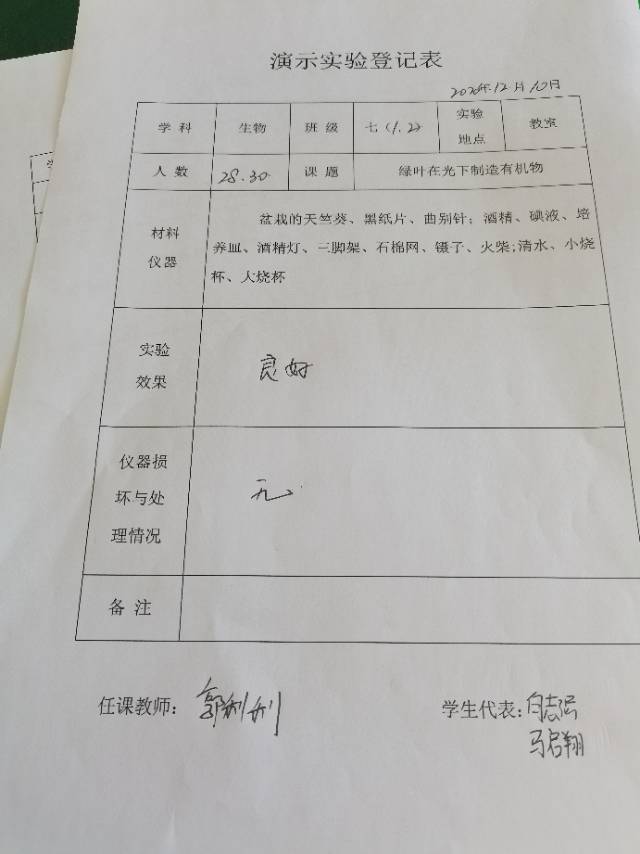 演示实验登记表
2020年12月10日
学科 生物 班级 七(1.2) 实验地点 教室
人数 28.30 课题 绿叶在光下制造有机物
材料
仪器
盆栽的天竺葵、黑纸片、曲别针;酒精、碘液、培
养皿、酒精灯、三脚架、石棉网、镊子、火柴;清水、小烧
杯、大烧杯
实验
效果
良好
仪器损
坏与处
理情况
无
备注
任课教师: 郭利利 学生代表: 白志强
马启翔